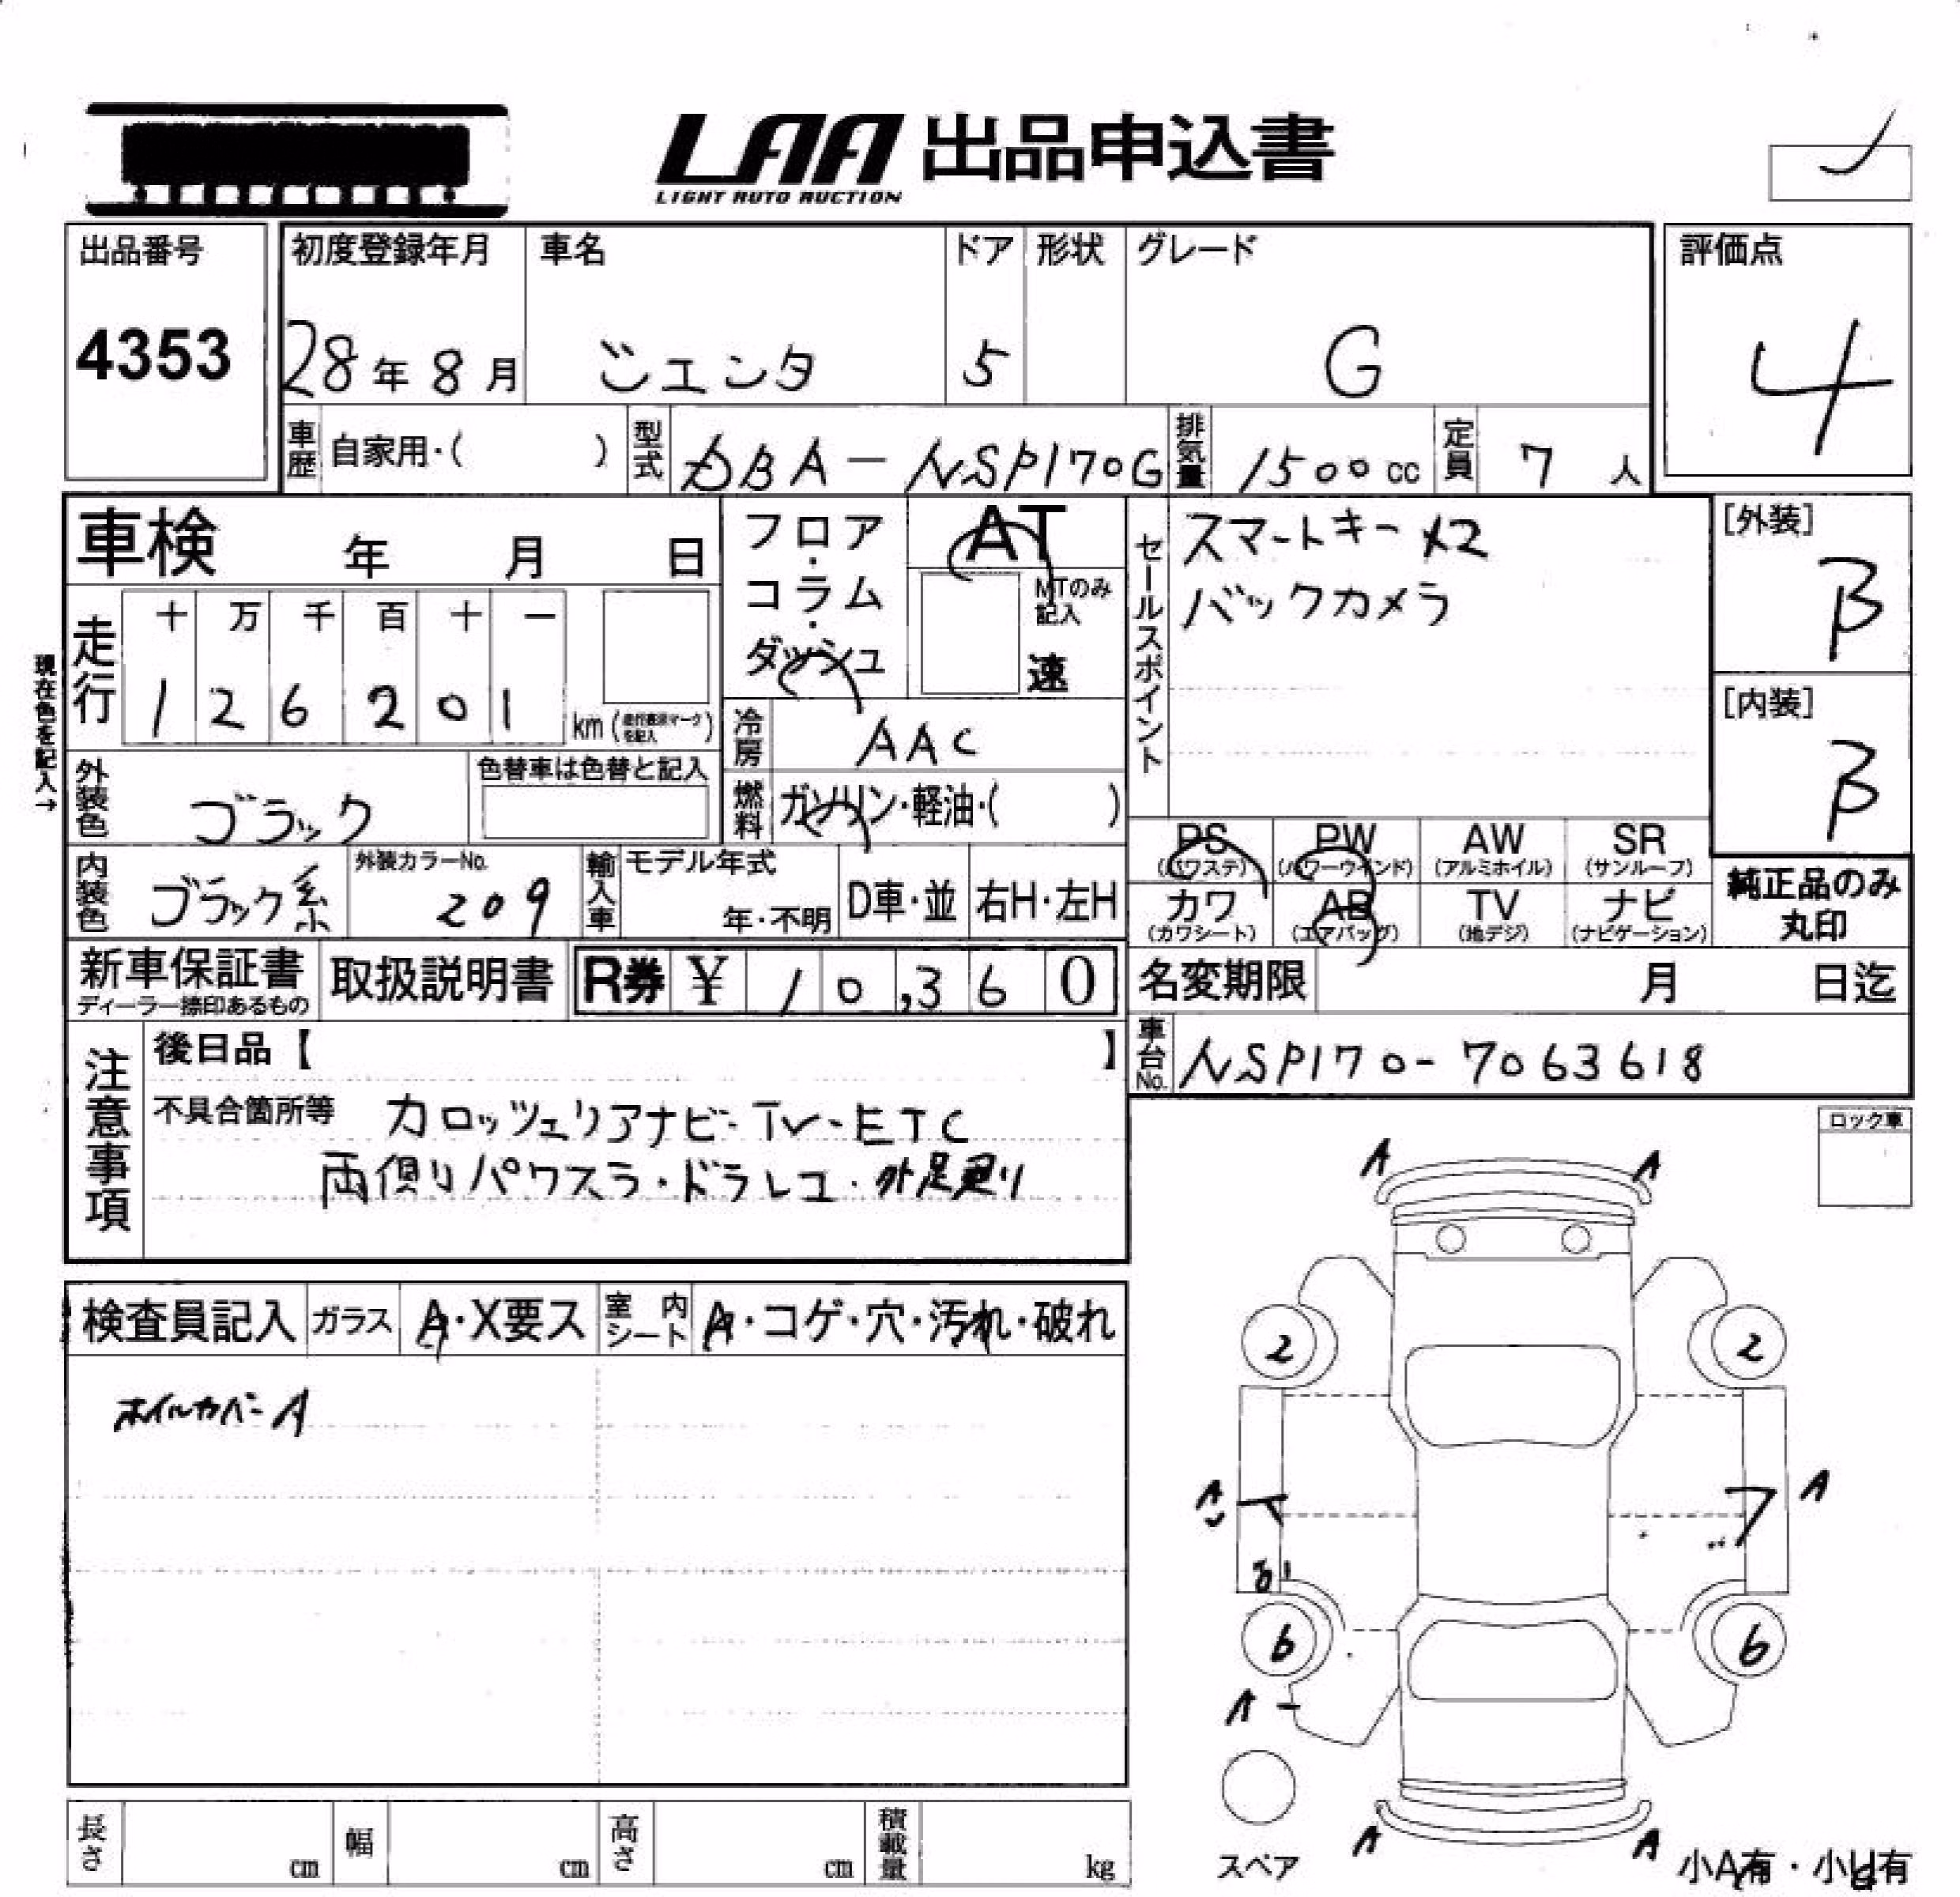 LAA 出品申込書
LIGHT AUTO AUCTION
出品番号
4353
初度登録年月
28年8月
車名
ジエンタ
ドア
5
形状
グレード
G
評価点
4
車歴 自家用・( )
型式 DBA-NSP170G
排気量 1500cc
定員 7人
車検 年 月 日
現在色を記入→
走行
十 万 千 百 十 一
1 2 6 2 0 1
km
フロア・コラム・ダッシュ
AT
MTのみ記入
速
冷房 AAC
燃料 ガソリン・軽油・( )
外装色 ブラック
色替車は色替と記入
内装色 ブラック系
外装カラーNo.
209
輸入車 モデル年式
年・不明
D車・並
右H・左H
セールスポイント
スマートキー×2
バックカメラ
[外装]
B
[内装]
B
PS (パワステ)
PW (パワーウインド)
AW (アルミホイル)
SR (サンルーフ)
カワ (カワシート)
AB (エアバッグ)
TV (地デジ)
ナビ (ナビゲーション)
純正品のみ
丸印
新車保証書
ディーラー捺印あるもの
取扱説明書
R券 ¥ 10,360
名変期限 月 日迄
車台No. NSP170-7063618
注意事項
後日品【 】
不具合箇所等 カロッツェリアナビ・TV・ETC
両側リパワスラ・ドラレコ・外足廻り
検査員記入
ガラス A・X要ス
室内シート A・コゲ・穴・汚れ・破れ
ホイルカバーA
ロック車
A A
2 2
A A
6 6
A
スペア
A A
小A有・小U有
長さ cm
幅 cm
高さ cm
積載量 kg